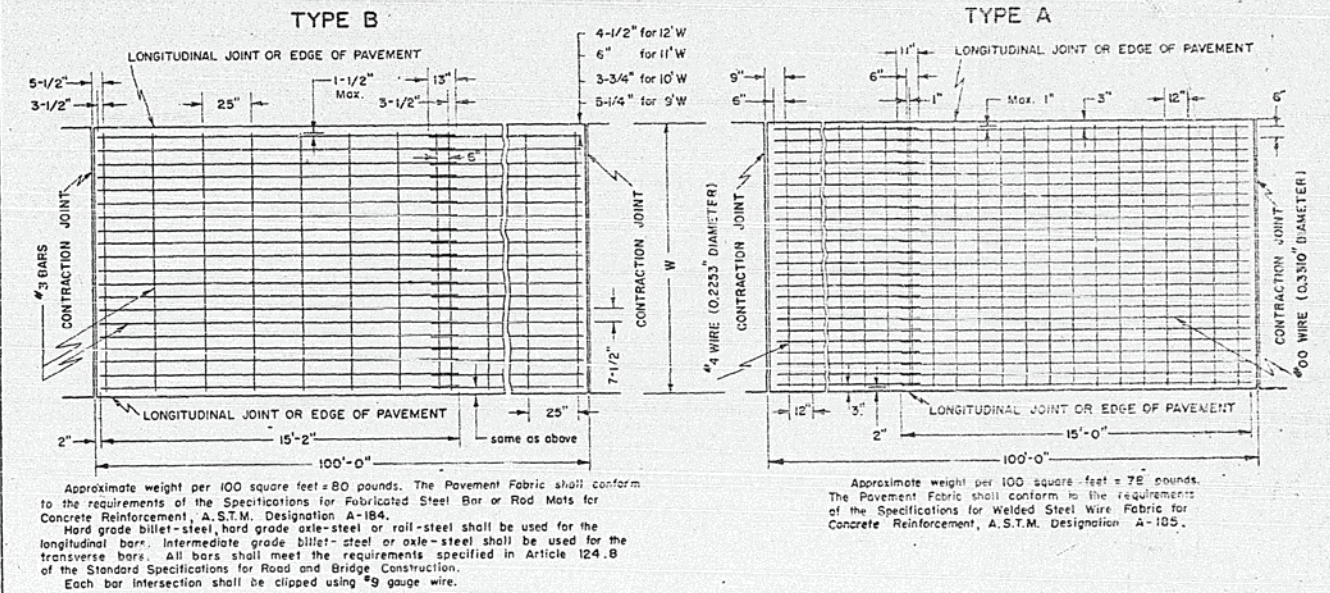 TYPE B
LONGITUDINAL JOINT OR EDGE OF PAVEMENT
5-1/2"
3-1/2"
25"
1-1/2"
Max.
13"
3-1/2"
4-1/2" for 12' W
6" for 11' W
3-3/4" for 10' W
5-1/4" for 9' W
#3 BARS
CONTRACTION JOINT
CONTRACTION JOINT
W
7-1/2"
LONGITUDINAL JOINT OR EDGE OF PAVEMENT
25"
2"
15'-2"
same as above
100'-0"
Approximate weight per 100 square feet = 80 pounds. The Pavement Fabric shall conform
to the requirements of the Specifications for Fabricated Steel Bar or Rod Mats for
Concrete Reinforcement, A.S.T.M. Designation A-184.
Hard grade billet-steel, hard grade axle-steel or rail-steel shall be used for the
longitudinal bars. Intermediate grade billet-steel or axle-steel shall be used for the
transverse bars. All bars shall meet the requirements specified in Article 124.8
of the Standard Specifications for Road and Bridge Construction.
Each bar intersection shall be clipped using #9 gauge wire.
TYPE A
LONGITUDINAL JOINT OR EDGE OF PAVEMENT
11"
9"
6"
6"
1"
Max. 1"
3"
12"
6"
#4 WIRE (0.2253" DIAMETER)
CONTRACTION JOINT
CONTRACTION JOINT
#00 WIRE (0.3310" DIAMETER)
12"
3"
2"
LONGITUDINAL JOINT OR EDGE OF PAVEMENT
15'-0"
100'-0"
Approximate weight per 100 square feet = 78 pounds.
The Pavement Fabric shall conform to the requirements
of the Specifications for Welded Steel Wire Fabric for
Concrete Reinforcement, A.S.T.M. Designation A-185.